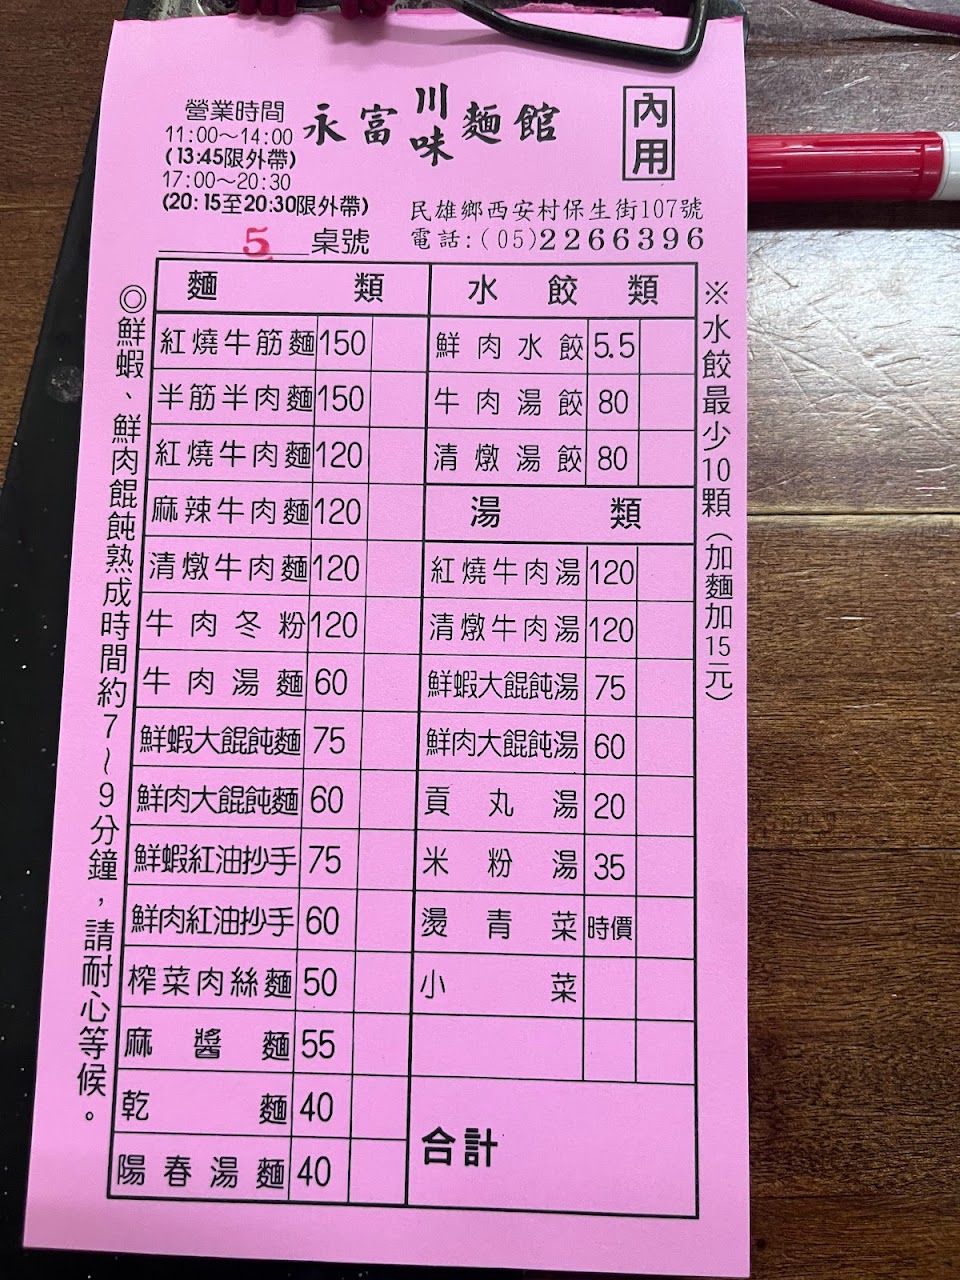 營業時間
11:00～14:00
(13:45限外帶)
17:00～20:30
(20:15至20:30限外帶)
永富川味麵館
內用
民雄鄉西安村保生街107號
電話:(05)2266396
5 桌號
◎鮮蝦、鮮肉餛飩熟成時間約7～9分鐘，請耐心等候。
麵類
紅燒牛筋麵 150
半筋半肉麵 150
紅燒牛肉麵 120
麻辣牛肉麵 120
清燉牛肉麵 120
牛肉冬粉 120
牛肉湯麵 60
鮮蝦大餛飩麵 75
鮮肉大餛飩麵 60
鮮蝦紅油抄手 75
鮮肉紅油抄手 60
榨菜肉絲麵 50
麻醬麵 55
乾麵 40
陽春湯麵 40
水餃類
鮮肉水餃 5.5
牛肉湯餃 80
清燉湯餃 80
湯類
紅燒牛肉湯 120
清燉牛肉湯 120
鮮蝦大餛飩湯 75
鮮肉大餛飩湯 60
貢丸湯 20
米粉湯 35
燙青菜 時價
小菜
合計
※水餃最少10顆（加麵加15元）